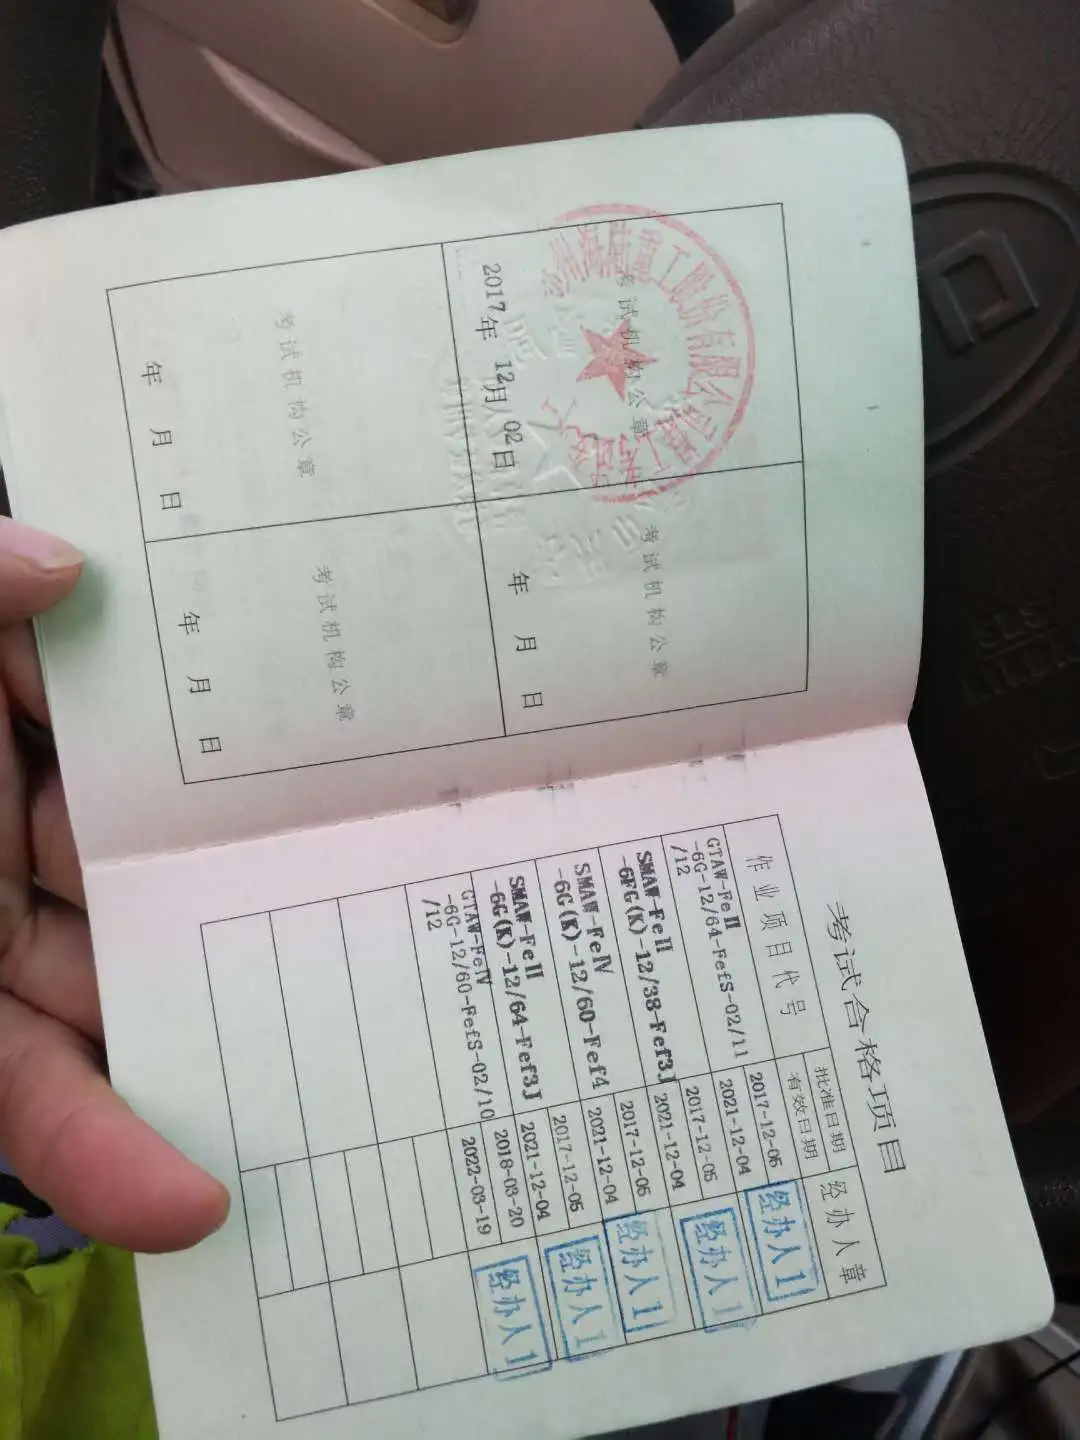 考试机构公章
2017年 12月 02日
考试机构公章
年 月 日
考试机构公章
年 月 日
考试机构公章
年 月 日
考试合格项目
作业项目代号
批准日期
有效日期
经办人章
GTAW-FeⅡ
-6G-12/64-FefS-02/11
/12
2017-12-05
2021-12-04
经办人1
SMAW-FeⅡ
-6FG(K)-12/38-Fef3J
2017-12-05
2021-12-04
经办人1
SMAW-FeⅣ
-6G(K)-12/60-Fef4
2017-12-05
2021-12-04
经办人1
SMAW-FeⅡ
-6G(K)-12/64-Fef3J
2017-12-05
2021-12-04
经办人1
GTAW-FeⅣ
-6G-12/60-FefS-02/10
/12
2018-03-20
2022-03-19
经办人1